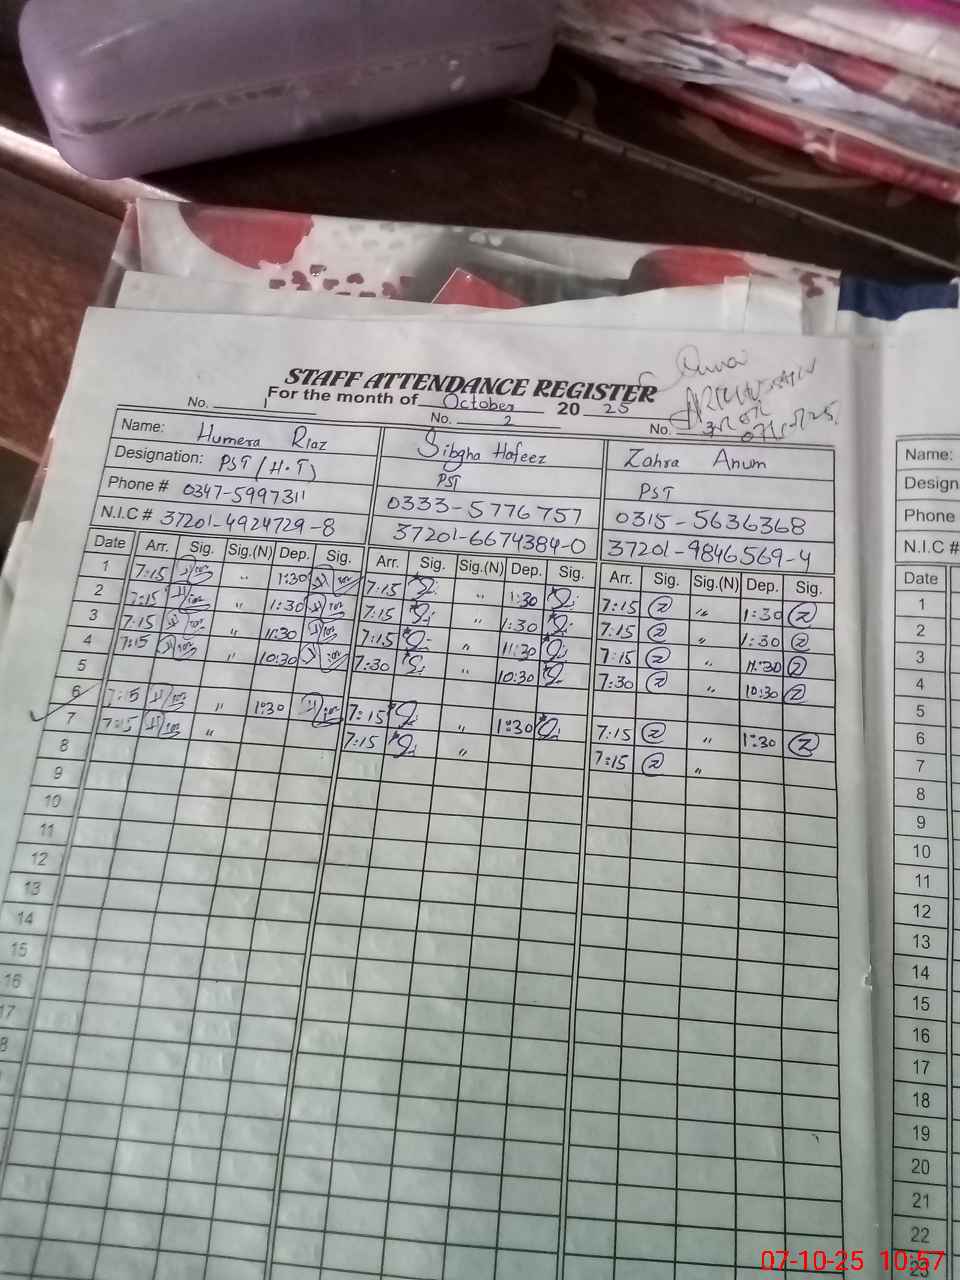 STAFF ATTENDANCE REGISTER
For the month of October 2025
No. 1 No. 2 No. 3
07-10-25
Name: Humera Riaz Sibgha Hafeez Zahra Anum
Designation: PST (H.T) PST PST
Phone # 0347-5997311 0333-5776757 0315-5636368
N.I.C # 37201-4924729-8 37201-6674384-0 37201-9846569-4
Date Arr. Sig. Sig.(N) Dep. Sig. Arr. Sig. Sig.(N) Dep. Sig. Arr. Sig. Sig.(N) Dep. Sig.
1 7:15 " 1:30 7:15 " 1:30 7:15 " 1:30
2 7:15 " 1:30 7:15 " 1:30 7:15 " 1:30
3 7:15 " 11:30 7:15 " 11:30 7:15 " 11:30
4 7:15 " 10:30 7:30 " 10:30 7:30 " 10:30
5
6 7:15 " 1:30 7:15 " 1:30 7:15 " 1:30
7 7:15 " 7:15 " 7:15 "
8
9
10
11
12
13
14
15
16
17
8
Name:
Design
Phone
N.I.C #
Date
1
2
3
4
5
6
7
8
9
10
11
12
13
14
15
16
17
18
19
20
21
22
23
07-10-25 10:57